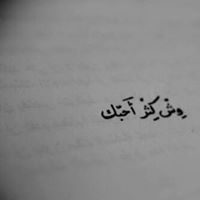 وِش كِثْر أَحبّك